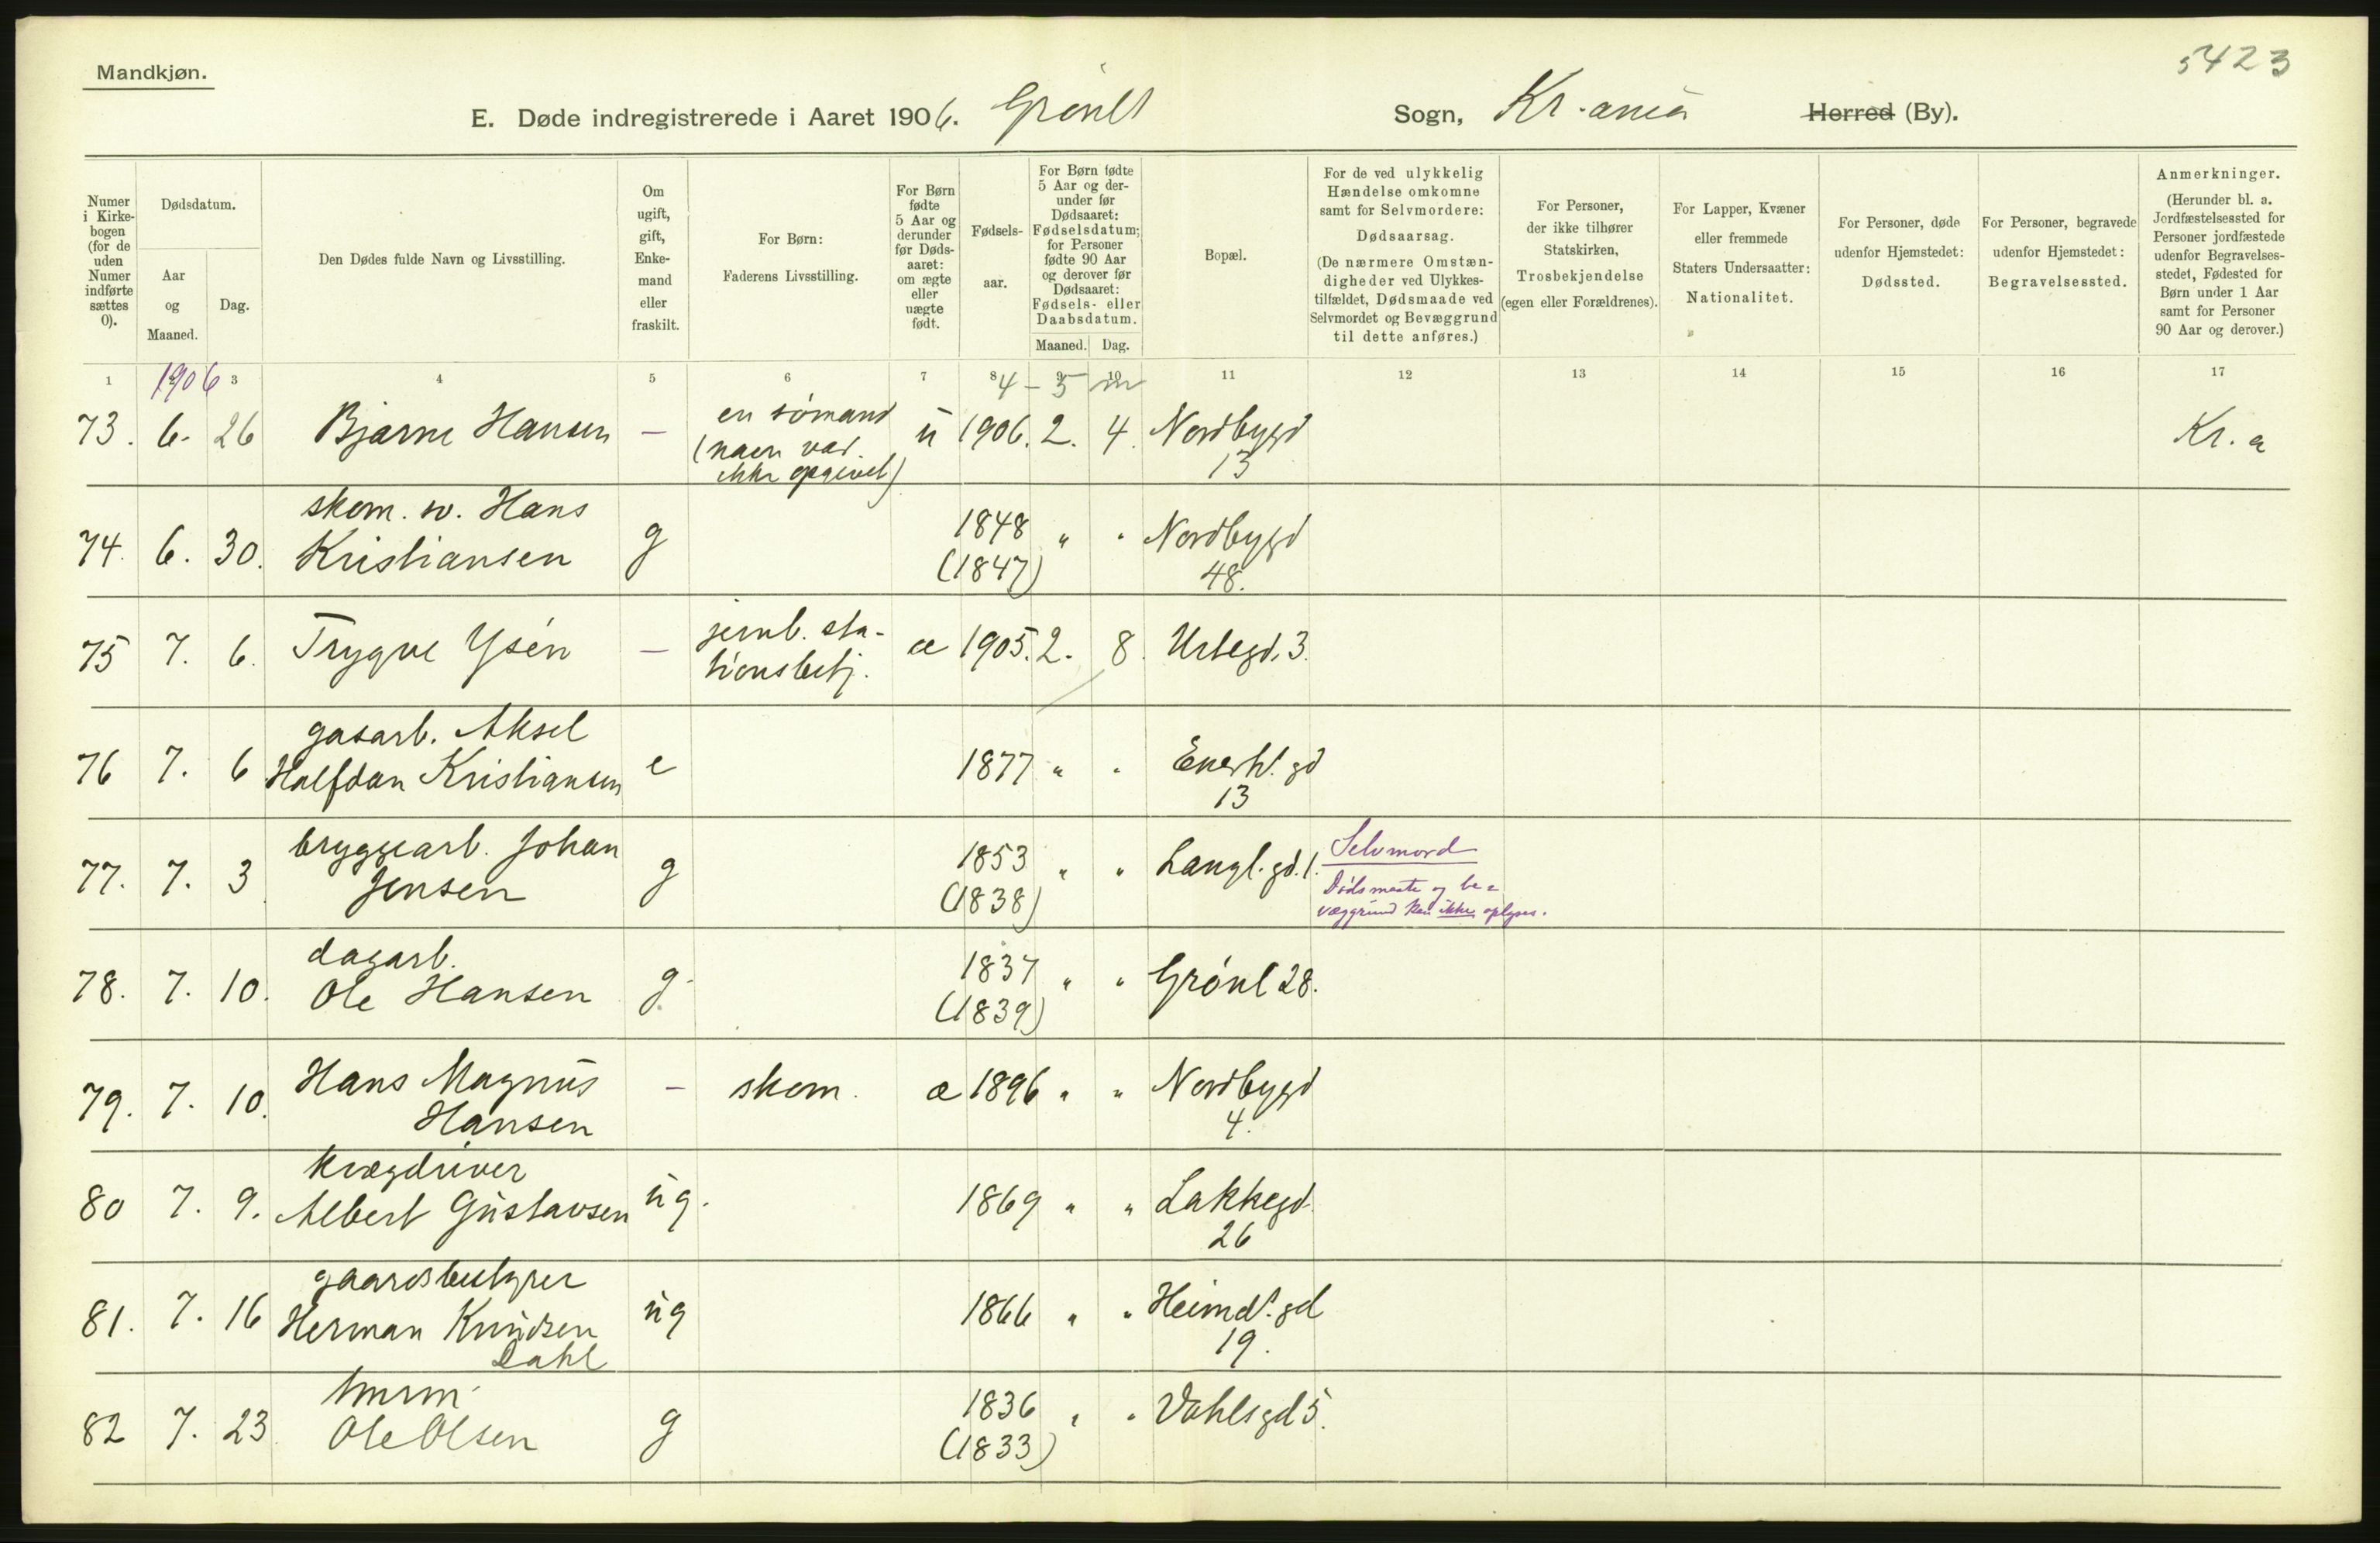 Mandkjøn.
5423
E. Døde indregistrerede i Aaret 1906. Grønl Sogn, Kr.ania Herred (By).
Numer i Kirkebogen (for de uden Numer indførte sættes 0).
Dødsdatum.
Aar og Maaned.
Dag.
Den Dødes fulde Navn og Livsstilling.
Om ugift, gift, Enkemand eller fraskilt.
For Børn: Faderens Livsstilling.
For Børn fødte 5 Aar og derunder før Dødsaaret: om ægte eller uægte født.
Fødselsaar.
For Børn fødte 5 Aar og derunder før Dødsaaret: Fødselsdatum; for Personer fødte 90 Aar og derover før Dødsaaret: Fødsels- eller Daabsdatum.
Maaned. Dag.
Bopæl.
For de ved ulykkelig Hændelse omkomne samt for Selvmordere: Dødsaarsag. (De nærmere Omstændigheder ved Ulykkestilfældet, Dødsmaade ved Selvmordet og Bevæggrund til dette anføres.)
For Personer, der ikke tilhører Statskirken, Trosbekjendelse (egen eller Forældrenes).
For Lapper, Kvæner eller fremmede Staters Undersaatter: Nationalitet.
For Personer, døde udenfor Hjemstedet: Dødssted.
For Personer, begravede udenfor Hjemstedet: Begravelsessted.
Anmerkninger. (Herunder bl. a. Jordfæstelsessted for Personer jordfæstede udenfor Begravelsesstedet, Fødested for Børn under 1 Aar samt for Personer 90 Aar og derover.)
1 2 3 4 5 6 7 8 9 10 11 12 13 14 15 16 17
1906 4-5 m
73. 6. 26 Bjarne Hansen — en sømand (navn var ikke opgivet) u 1906. 2. 4. Nordbygd 13 Kr.a
74. 6. 30. skom. sv. Hans Kristiansen g 1848 (1847) " " Nordbygd 48.
75 7. 6. Trygve Ysén — jernb. stationsbetj. æ 1905. 2. 8. Urtegd. 3.
76 7. 6 gasarb. Aksel Halfdan Kristiansen e 1877 " " Enerh. gd 13
77. 7. 3 bryggearb. Johan Jensen g 1853 (1838) " " Langl. gd. 1. Selvmord
Dødsmaate og bevæggrund kan ikke oplyses.
78. 7. 10. dagarb. Ole Hansen g. 1837 (1839) " " Grønl 28.
79. 7. 10. Hans Magnus Hansen — skom. æ 1896 " " Nordbygd 4.
80 7. 9. kvægdriver Albert Gustavsen ug. 1869 " " Lakkegd. 26
81. 7. 16 gaardsbestyrer Herman Knudsen Dahl ug 1866 " " Heimd. gd 19.
82 7. 23. tmrm. Ole Olsen g 1836 (1833) " " Vahlsgd 5.